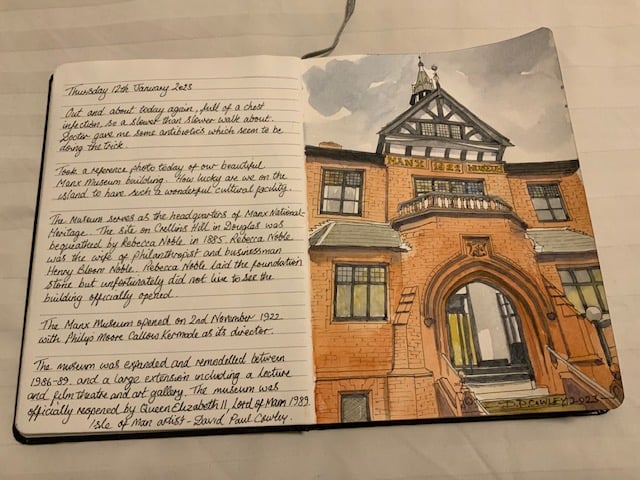 Thursday 12th January 2023
Out and about today again, full of a chest
infection, so a slower than slower walk about.
Doctor gave me some antibiotics which seem to be
doing the trick.
Took a reference photo today of our beautiful
Manx Museum building. How lucky are we on the
island to have such a wonderful cultural facility.
The Museum serves as the headquarters of Manx National
Heritage. The site on Crellins Hill in Douglas was
bequeathed by Rebecca Noble in 1885. Rebecca Noble
was the wife of Philanthropist and businessman
Henry Bloom Noble. Rebecca Noble laid the foundation
stone but unfortunately did not live to see the
building officially opened.
The Manx Museum opened on 2nd November 1922
with Philip Moore Callow Kermode as its director.
The museum was expanded and remodelled between
1986-89, and a large extension including a lecture
and film theatre and art gallery. The museum was
officially reopened by Queen Elizabeth II, Lord of Mann 1989.
Isle of Man artist - David Paul Cowley.
MANX 1922 MUSEUM
D.P COWLEY 2023